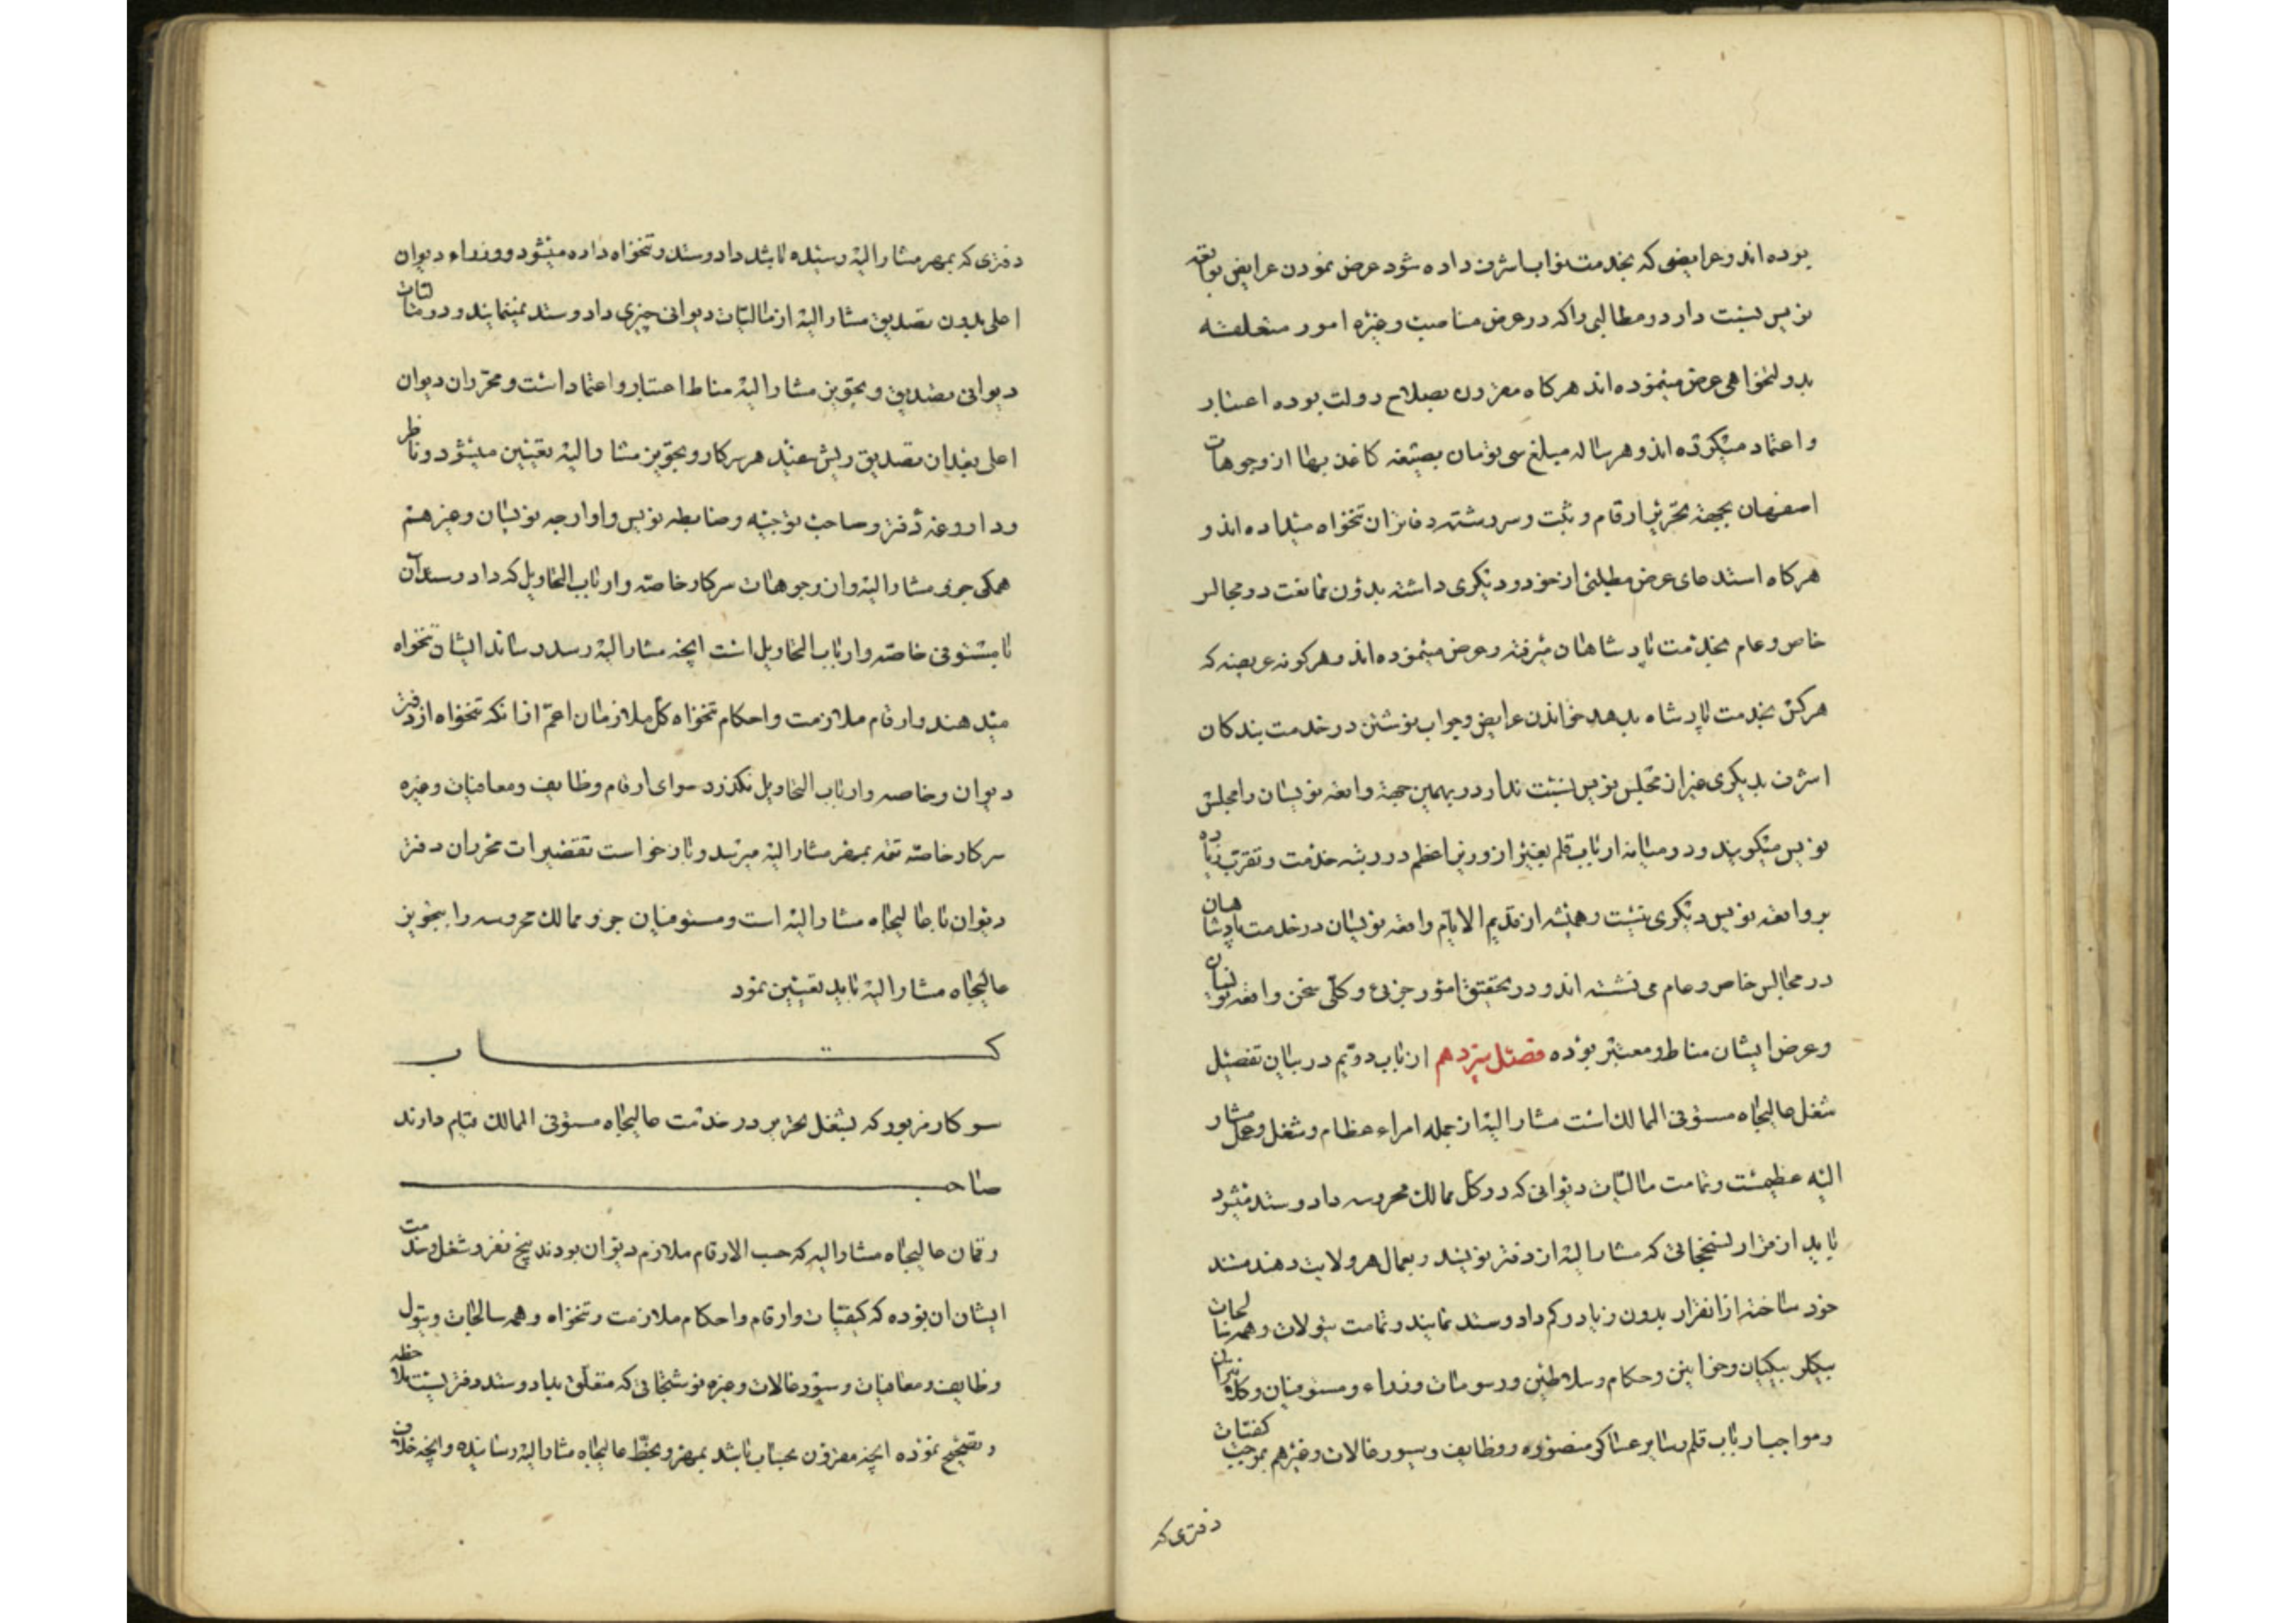 بوده اند و عرایضی که بخدمت نواب اشرف داده شود عرض نمودن عرایض بواقعه
نویس نسبت دارد و مطالبی را که در عرض مناصب و غیره امور متعلقه
بدولتخواهی عرض مینموده اند هرگاه مقرون بصلاح دولت بوده اعتبار
و اعتماد میکرده اند و هر ساله مبلغ سی تومان بصیغه کاغذ بها از وجوهات
اصفهان بجهة تحریر ارقام و ثبت و سررشته دفاتر آن تنخواه میداده اند و
هرکاه استدعای عرض مطلبی از خود و دیکری داشته بدون ممانعت در مجالس
خاص و عام بخدمت پادشاهان میرفته و عرض مینموده اند و هرکونه عریضه که
هرکس بخدمت پادشاه بدهد خواندن عرایض و جواب نوشتن در خدمت بندکان
اشرف بدیکری غیر از مجلس نویس نسبت ندارد و بهمین جهة واقعه نویسان را مجلس
نویس میکویند و در میانه ارباب قلم بغیر از وزیر اعظم در رتبه خدمت و تقرب زیاده
بر واقعه نویس دیکری نیست و همیشه از قدیم الایام واقعه نویسان در خدمت پادشاهان
در مجالس خاص و عام می نشسته اند و در تحقیق امور جزیی و کلی سخن واقعه نویسان
و عرض ایشان مناط و معتبر بوده فصل سیزدهم از باب دویم در بیان تفصیل
شغل عالیجاه مستوفی الممالک است مشار الیه از جمله امراء عظام و شغل و عمل مشار
الیه عظیمست و تمامت مالیات دیوانی که در کل ممالک محروسه داد و ستد میشود
باید از قرار نسخجاتی که مشار الیه از دفتر نویسد و بعمال هر ولایت دهند سند
خود ساخته از انقرار بدون زیاد و کم داد و ستد نمایند و تمامت تیولات و همه سالجات
بیکلر بیکیان و خوانین و حکام و سلاطین و رسومات وزراء و مستوفیان و کلانتران
و مواجب ارباب قلم و سایر عساکر منصوره و وظایف و سیورغالات و غیرهم بموجب کفیات
دفتری که
دفتری که بمهر مشار الیه رسیده باشد داد و ستد و تنخواه داده میشود و وزراء دیوان
اعلی بدون تصدیق مشار الیه از مالیات دیوانی چیزی داد و ستد نمینمایند و در مالیات
دیوانی تصدیق و تجویز مشار الیه مناط اعتبار و اعتماد است و محرران دیوان
اعلی بعد از تصدیق ریش سفید هر سرکار و تجویز مشار الیه تعیین میشود و ناظر
و داروغه دفتر و صاحب توجیه و ضابطه نویس و اوارجه نویسان و غیرهم
همکی جزو مشار الیه و از وجوهات سرکار خاصه و ارباب التحاویل که داد و ستد آن
با مستوفی خاصه و ارباب التحاویل است آنچه مشار الیه رسد رساند ایشان تنخواه
میدهند و ارقام ملازمت و احکام تنخواه کل ملازمان اعم از انکه تنخواه از دفتر
دیوان و خاصه و ارباب التحاویل نکذرد سوای ارقام وظایف و معافیات و غیره
سرکار خاصه تتمه بمهر مشار الیه میرسد و بازخواست تقصیرات محرران دفتر
دیوان با عالیجاه مشار الیه است و مستوفیان جزو ممالک محروسه را بتجویز
عالیجاه مشار الیه باید تعیین نمود
کتاب
سرکار مزبور که بشغل تحریر در خدمت عالیجاه مستوفی الممالک قیام دارند
صاحب
رقمان عالیجاه مشار الیه که حسب الارقام ملازم دیوان بودند پنج نفر و شغل و خدمت
ایشان ان بوده که کیفیات و ارقام و احکام ملازمت و تنخواه و همه سالجات و تیول
وظایف و معافیات و سیورغالات و غیره نوشتجاتی که متعلق بداد و ستد دفتر است ملاحظه
و تصحیح نموده آنچه مقرون بحساب باشد بمهر و بخط عالیجاه مشار الیه رسانیده و آنچه خلاف